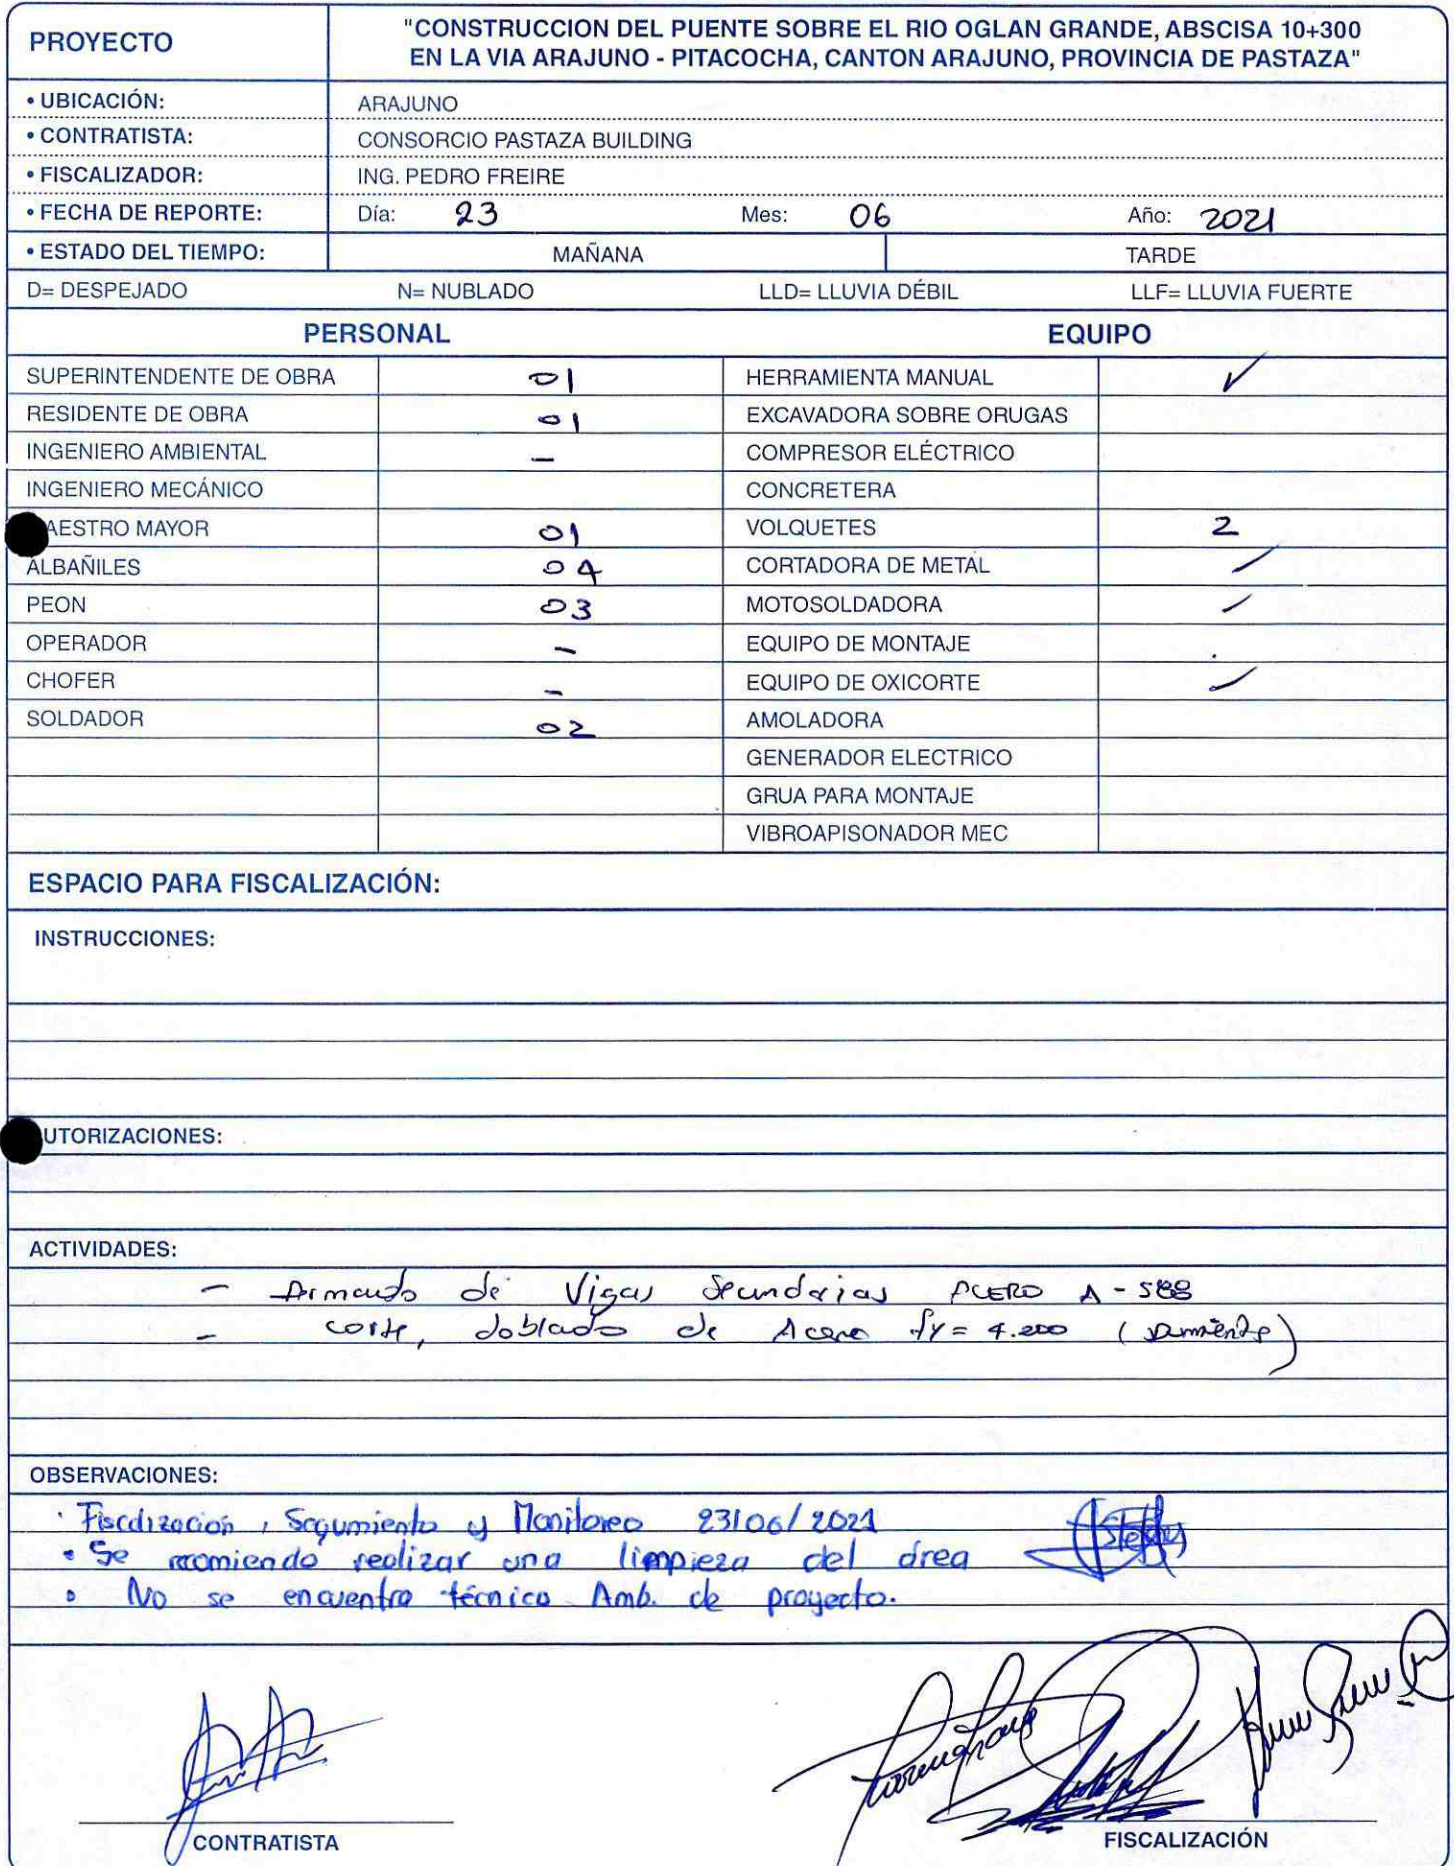 PROYECTO
"CONSTRUCCION DEL PUENTE SOBRE EL RIO OGLAN GRANDE, ABSCISA 10+300
EN LA VIA ARAJUNO - PITACOCHA, CANTON ARAJUNO, PROVINCIA DE PASTAZA"
• UBICACIÓN: ARAJUNO
• CONTRATISTA: CONSORCIO PASTAZA BUILDING
• FISCALIZADOR: ING. PEDRO FREIRE
• FECHA DE REPORTE: Día: 23 Mes: 06 Año: 2021
• ESTADO DEL TIEMPO: MAÑANA TARDE
D= DESPEJADO N= NUBLADO LLD= LLUVIA DÉBIL LLF= LLUVIA FUERTE
PERSONAL EQUIPO
SUPERINTENDENTE DE OBRA 01 HERRAMIENTA MANUAL ✓
RESIDENTE DE OBRA 01 EXCAVADORA SOBRE ORUGAS
INGENIERO AMBIENTAL - COMPRESOR ELÉCTRICO
INGENIERO MECÁNICO CONCRETERA
AESTRO MAYOR 01 VOLQUETES 2
ALBAÑILES 04 CORTADORA DE METAL ✓
PEON 03 MOTOSOLDADORA ✓
OPERADOR - EQUIPO DE MONTAJE .
CHOFER - EQUIPO DE OXICORTE ✓
SOLDADOR 02 AMOLADORA
GENERADOR ELECTRICO
GRUA PARA MONTAJE
VIBROAPISONADOR MEC
ESPACIO PARA FISCALIZACIÓN:
INSTRUCCIONES:
UTORIZACIONES:
ACTIVIDADES:
- Armado de Vigas Secundarias ACERO A - 588
- corte, doblado de Acero fy = 4.200
OBSERVACIONES:
• Fiscalización, Seguimiento y Monitoreo 23/06/2021
• Se recomienda realizar una limpieza del área
• No se encuentra técnico Amb. de proyecto.
CONTRATISTA FISCALIZACIÓN